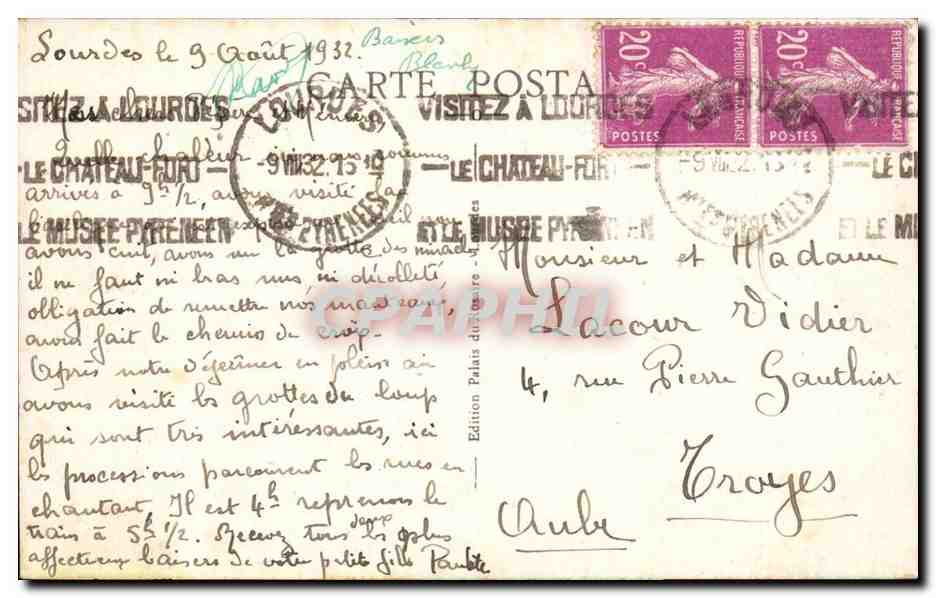 Lourdes le 9 Août 1932
Baisers
CARTE POSTA
20c
REPUBLIQUE FRANÇAISE
POSTES
20c
REPUBLIQUE FRANÇAISE
POSTES
VISITEZ A LOURDES
LE CHATEAU-FORT
ET LE MUSEE PYRENEEN
LOURDES
-9 VIII 32. 15
HTES PYRENEES
arrives à 9h 1/2, avons visité la
avons cuit, avons vu la grotte des miracles
il ne faut ni bras nus ni décolleté
obligation de remettre nos manteaux,
avons fait le chemin de croix.
Après notre déjeuner en plein air
avons visité les grottes du loup
qui sont très intéressantes, ici
les processions parcourent les rues en
chantant, Il est 4h reprenons le
train à 5h 1/2. Recevez tous deux les plus
affectueux baisers de votre petite fille Paulette
Edition Palais du Rosaire - Lourdes
Monsieur et Madame
Lacour Didier
4, rue Pierre Gauthier
Troyes
Aube
CPAPHIL